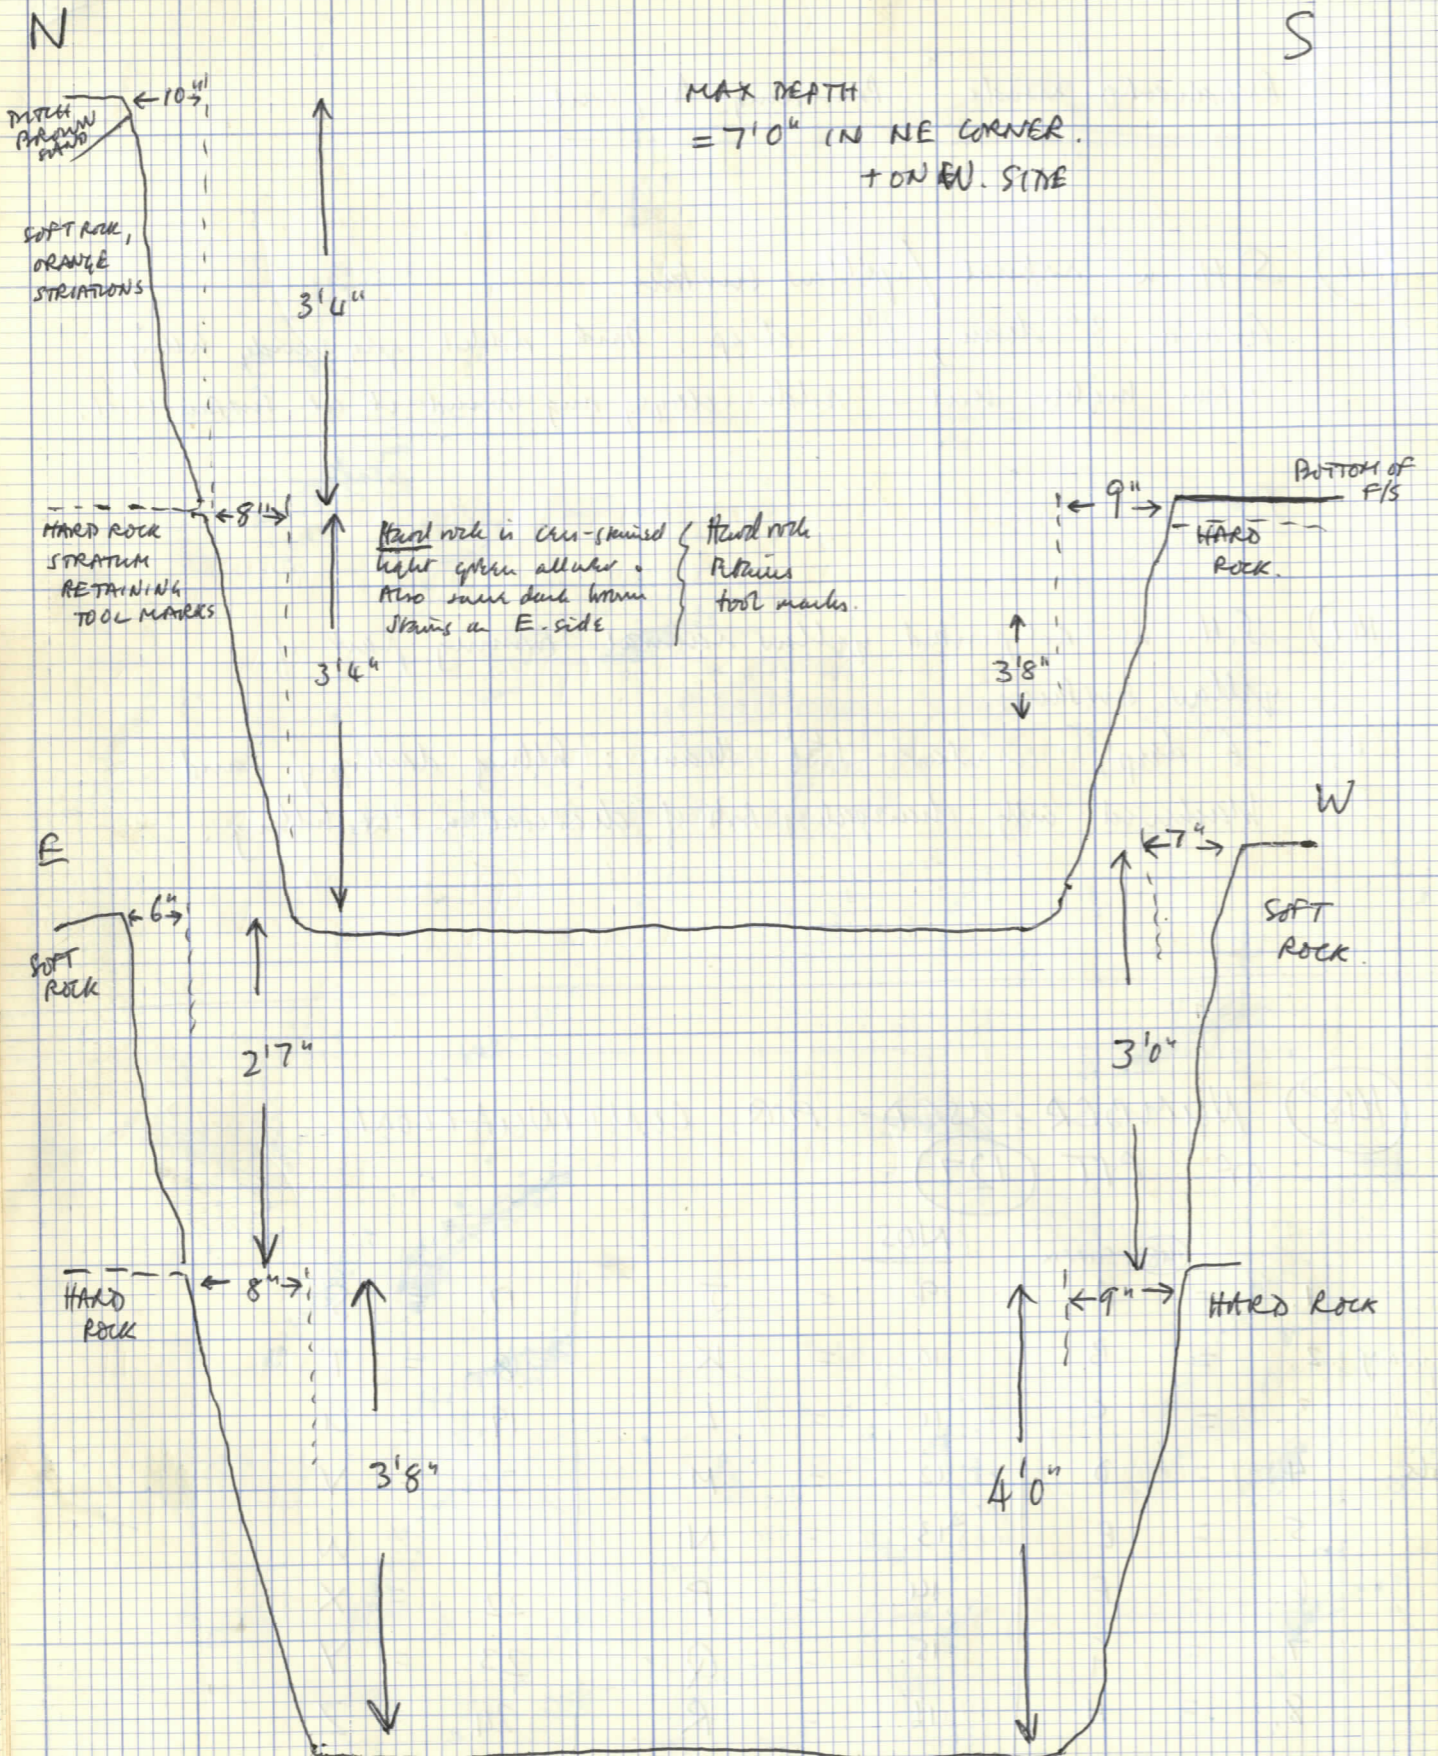 N
S
10"
DITCH
BROWN
SAND
MAX DEPTH
= 7'0" IN NE CORNER.
+ ON W. SIDE
SOFT ROCK,
ORANGE
STRIATIONS
3'4"
HARD ROCK
STRATUM
RETAINING
TOOL MARKS
8"
Hard rock is cess-stained
light green all over.
Also some dark brown
stains on E. side
Hard rock
retains
tool marks.
3'4"
9"
BOTTOM OF
F/S
HARD
ROCK.
3'8"
E
W
6"
7"
SOFT
ROCK
SOFT
ROCK.
2'7"
3'0"
HARD
ROCK
8"
9"
HARD ROCK
3'8"
4'0"